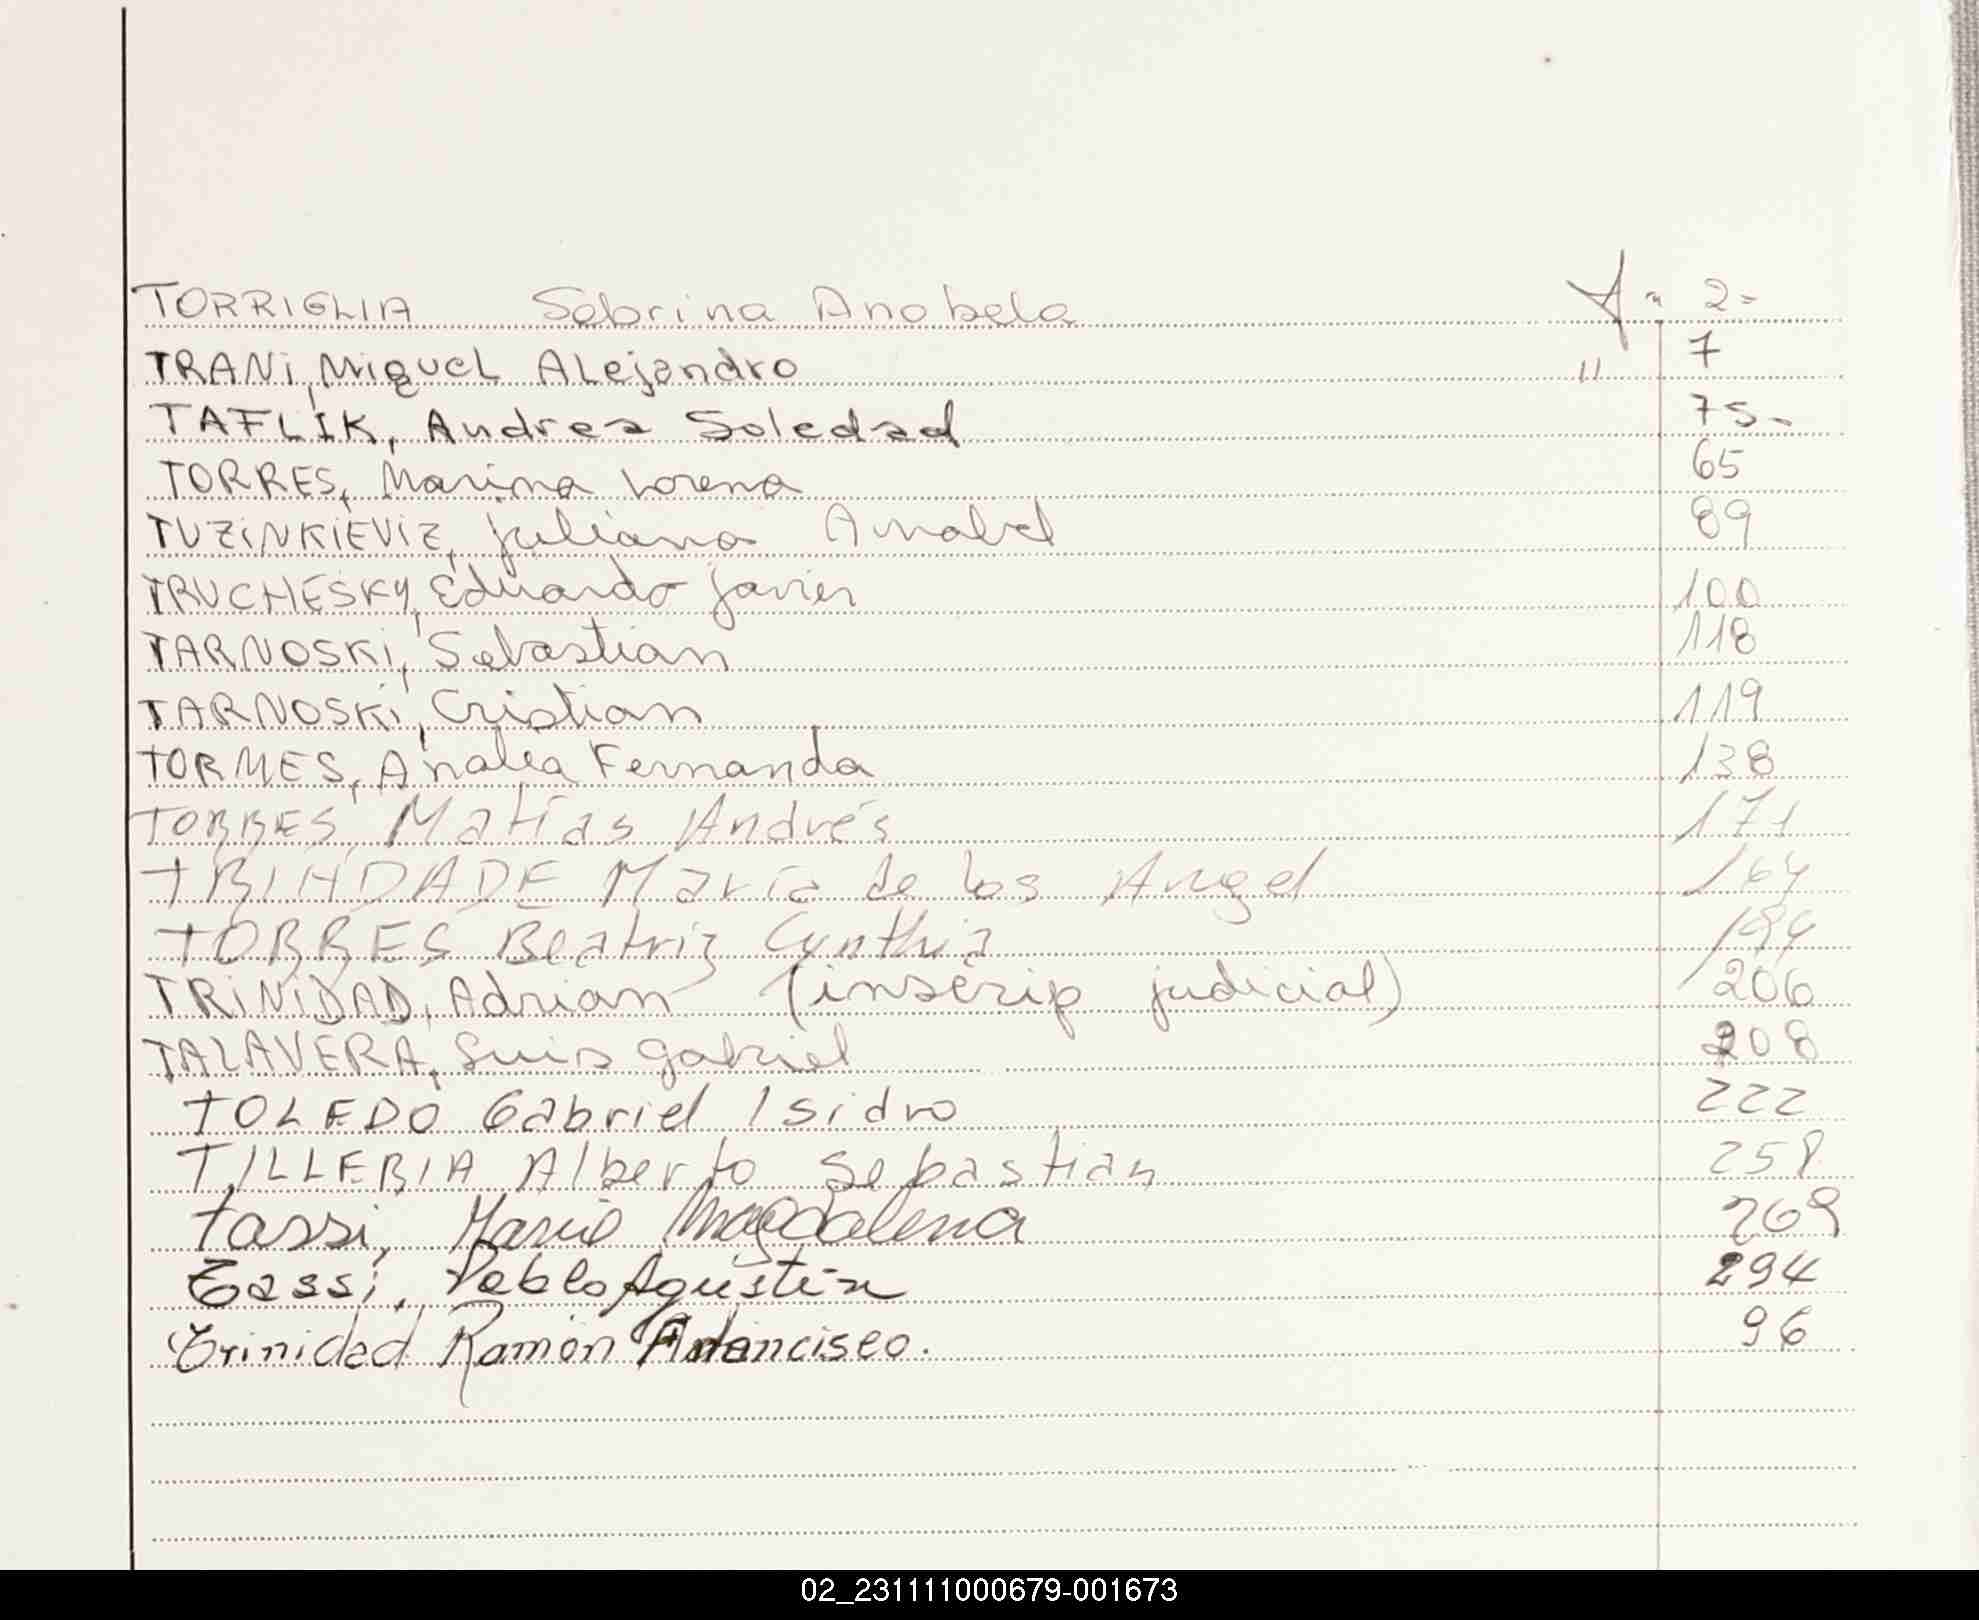 TORRIGLIA Sabrina Anabela A" 2=
TRANi, Miguel Alejandro " 7
TAFLIK, Andrea Soledad 75-
TORRES, Marina Lorena 65
TUZiNKIEViZ, Juliana Anabel 89
TRUCHESKY, Eduardo Javier 100
TARNOSKi, Sebastian 118
TARNOSKi, Cristian 119
TORMES, Analea Fernanda 138
TORRES, Matías Andrés 171
TRINDADE María de los Angel 164
TORRES Beatriz Cynthia
TRiNiDAD, Adrian (inscrip judicial) 206
TALAVERA, Luis Gabriel 208
TOLEDO Gabriel Isidro 222
TILLERIA Alberto Sebastian 258
Tassi, Magdalena 269
Tassi, Pablo Agustín 294
Trinidad Ramón 96
02_231111000679-001673